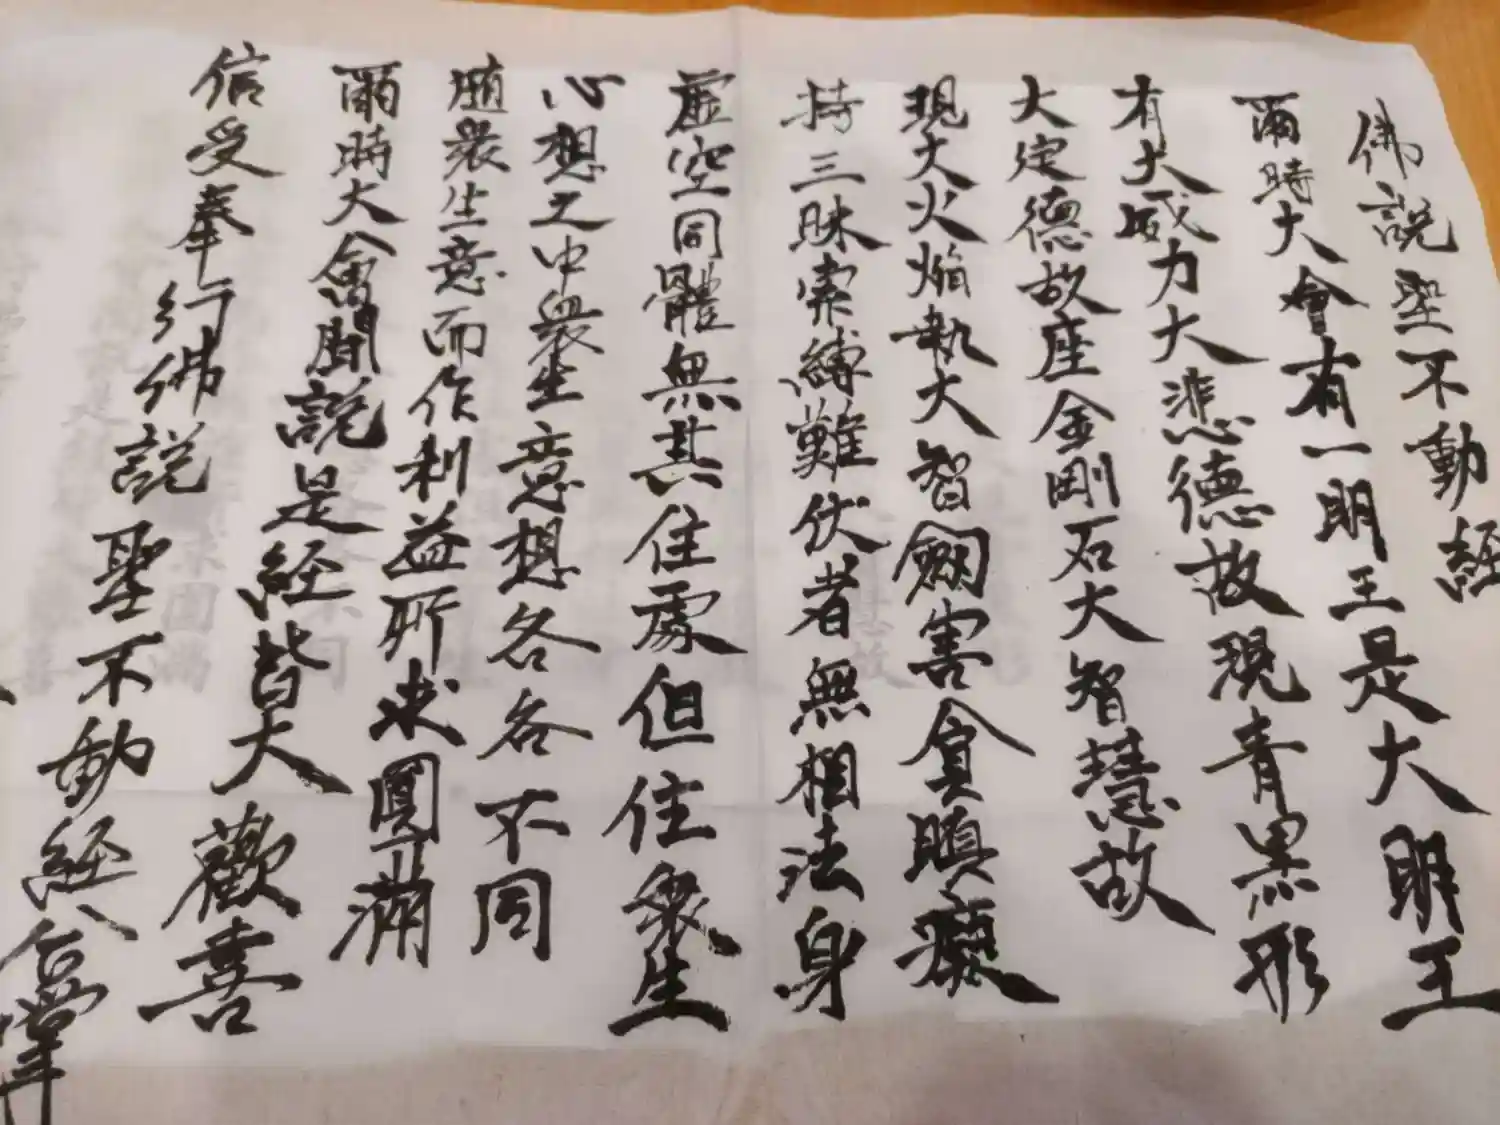 佛説聖不動經
爾時大會有一明王是大明王
有大威力大悲德故現青黑形
大定德故座金剛石大智慧故
現大火焔執大智劔害貪瞋癡
持三昧索縛難伏者無相法身
虚空同體無其住處但住衆生
心想之中衆生意想各各不同
随衆生意而作利益所求圓滿
爾時大會聞説是經皆大歡喜
信受奉行佛説聖不動經
合掌